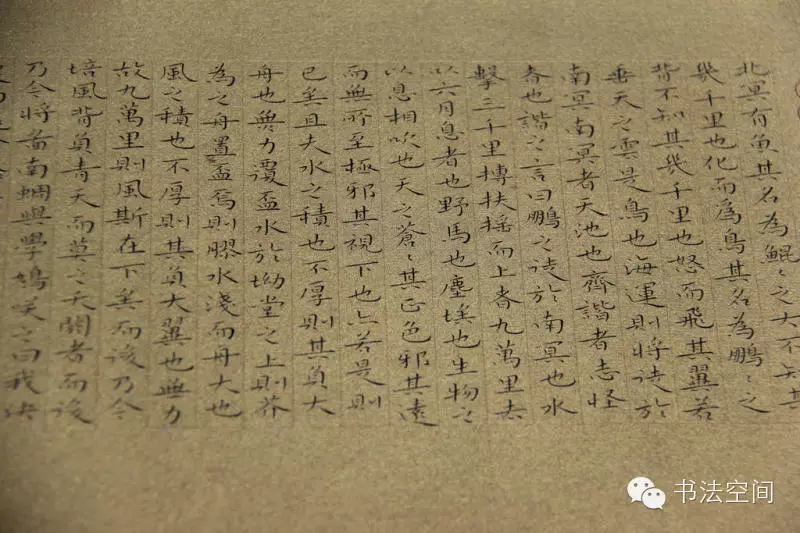 北冥有魚其名為鯤〻之大不知其
幾千里也化而為鳥其名為鵬〻之
背不知其幾千里也怒而飛其翼若
垂天之雲是鳥也海運則將徙於
南冥南冥者天池也齊諧者志怪
者也諧之言曰鵬之徙於南冥也水
擊三千里摶扶搖而上者九萬里去
以六月息者也野馬也塵埃也生物之
以息相吹也天之蒼〻其正色邪其遠
而無所至極邪其視下也亦若是則
已矣且夫水之積也不厚則其負大
舟也無力覆盃水於坳堂之上則芥
為之舟置盃焉則膠水淺而舟大也
風之積也不厚則其負大翼也無力
故九萬里則風斯在下矣而後乃今
培風背負青天而莫之夭閼者而後
乃今將啚南蜩與學鳩笑之曰我決
书法空间